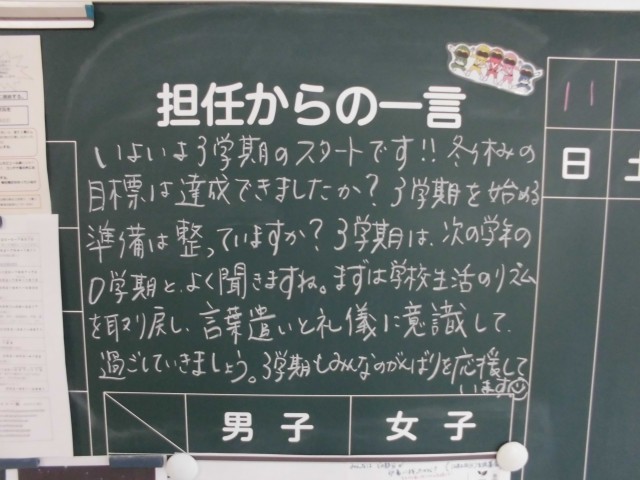 担任からの一言
いよいよ3学期のスタートです!! 冬休みの
目標は達成できましたか? 3学期を始める
準備は整っていますか? 3学期は、次の学年の
0学期と、よく聞きますね。まずは学校生活のリズム
を取り戻し、言葉遣いと礼儀に意識して、
過ごしていきましょう。3学期もみんなのがんばりを応援して
います。
11
日
土
男子
女子